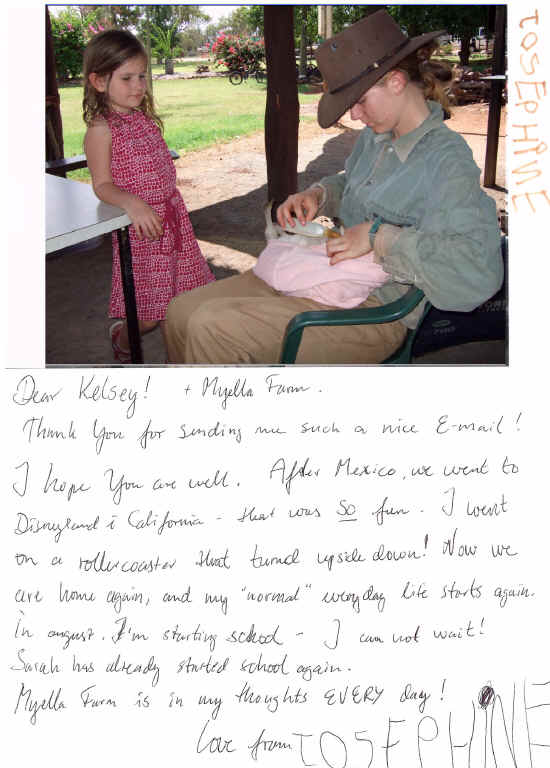 JOSEPHINE
Dear Kelsey! + Myella Farm.
Thank You for sending me such a nice E-mail!
I hope You are well. After Mexico, we went to
Disneyland i California - that was SO fun. I went
on a rollercoaster that turnd upside down! Now we
are home again, and my "normal" weryday life starts again.
In august. I'm starting school - I can not wait!
Sarah has already started school again.
Myella Farm is in my thoughts EVERY day!
Love from JOSEPHINE